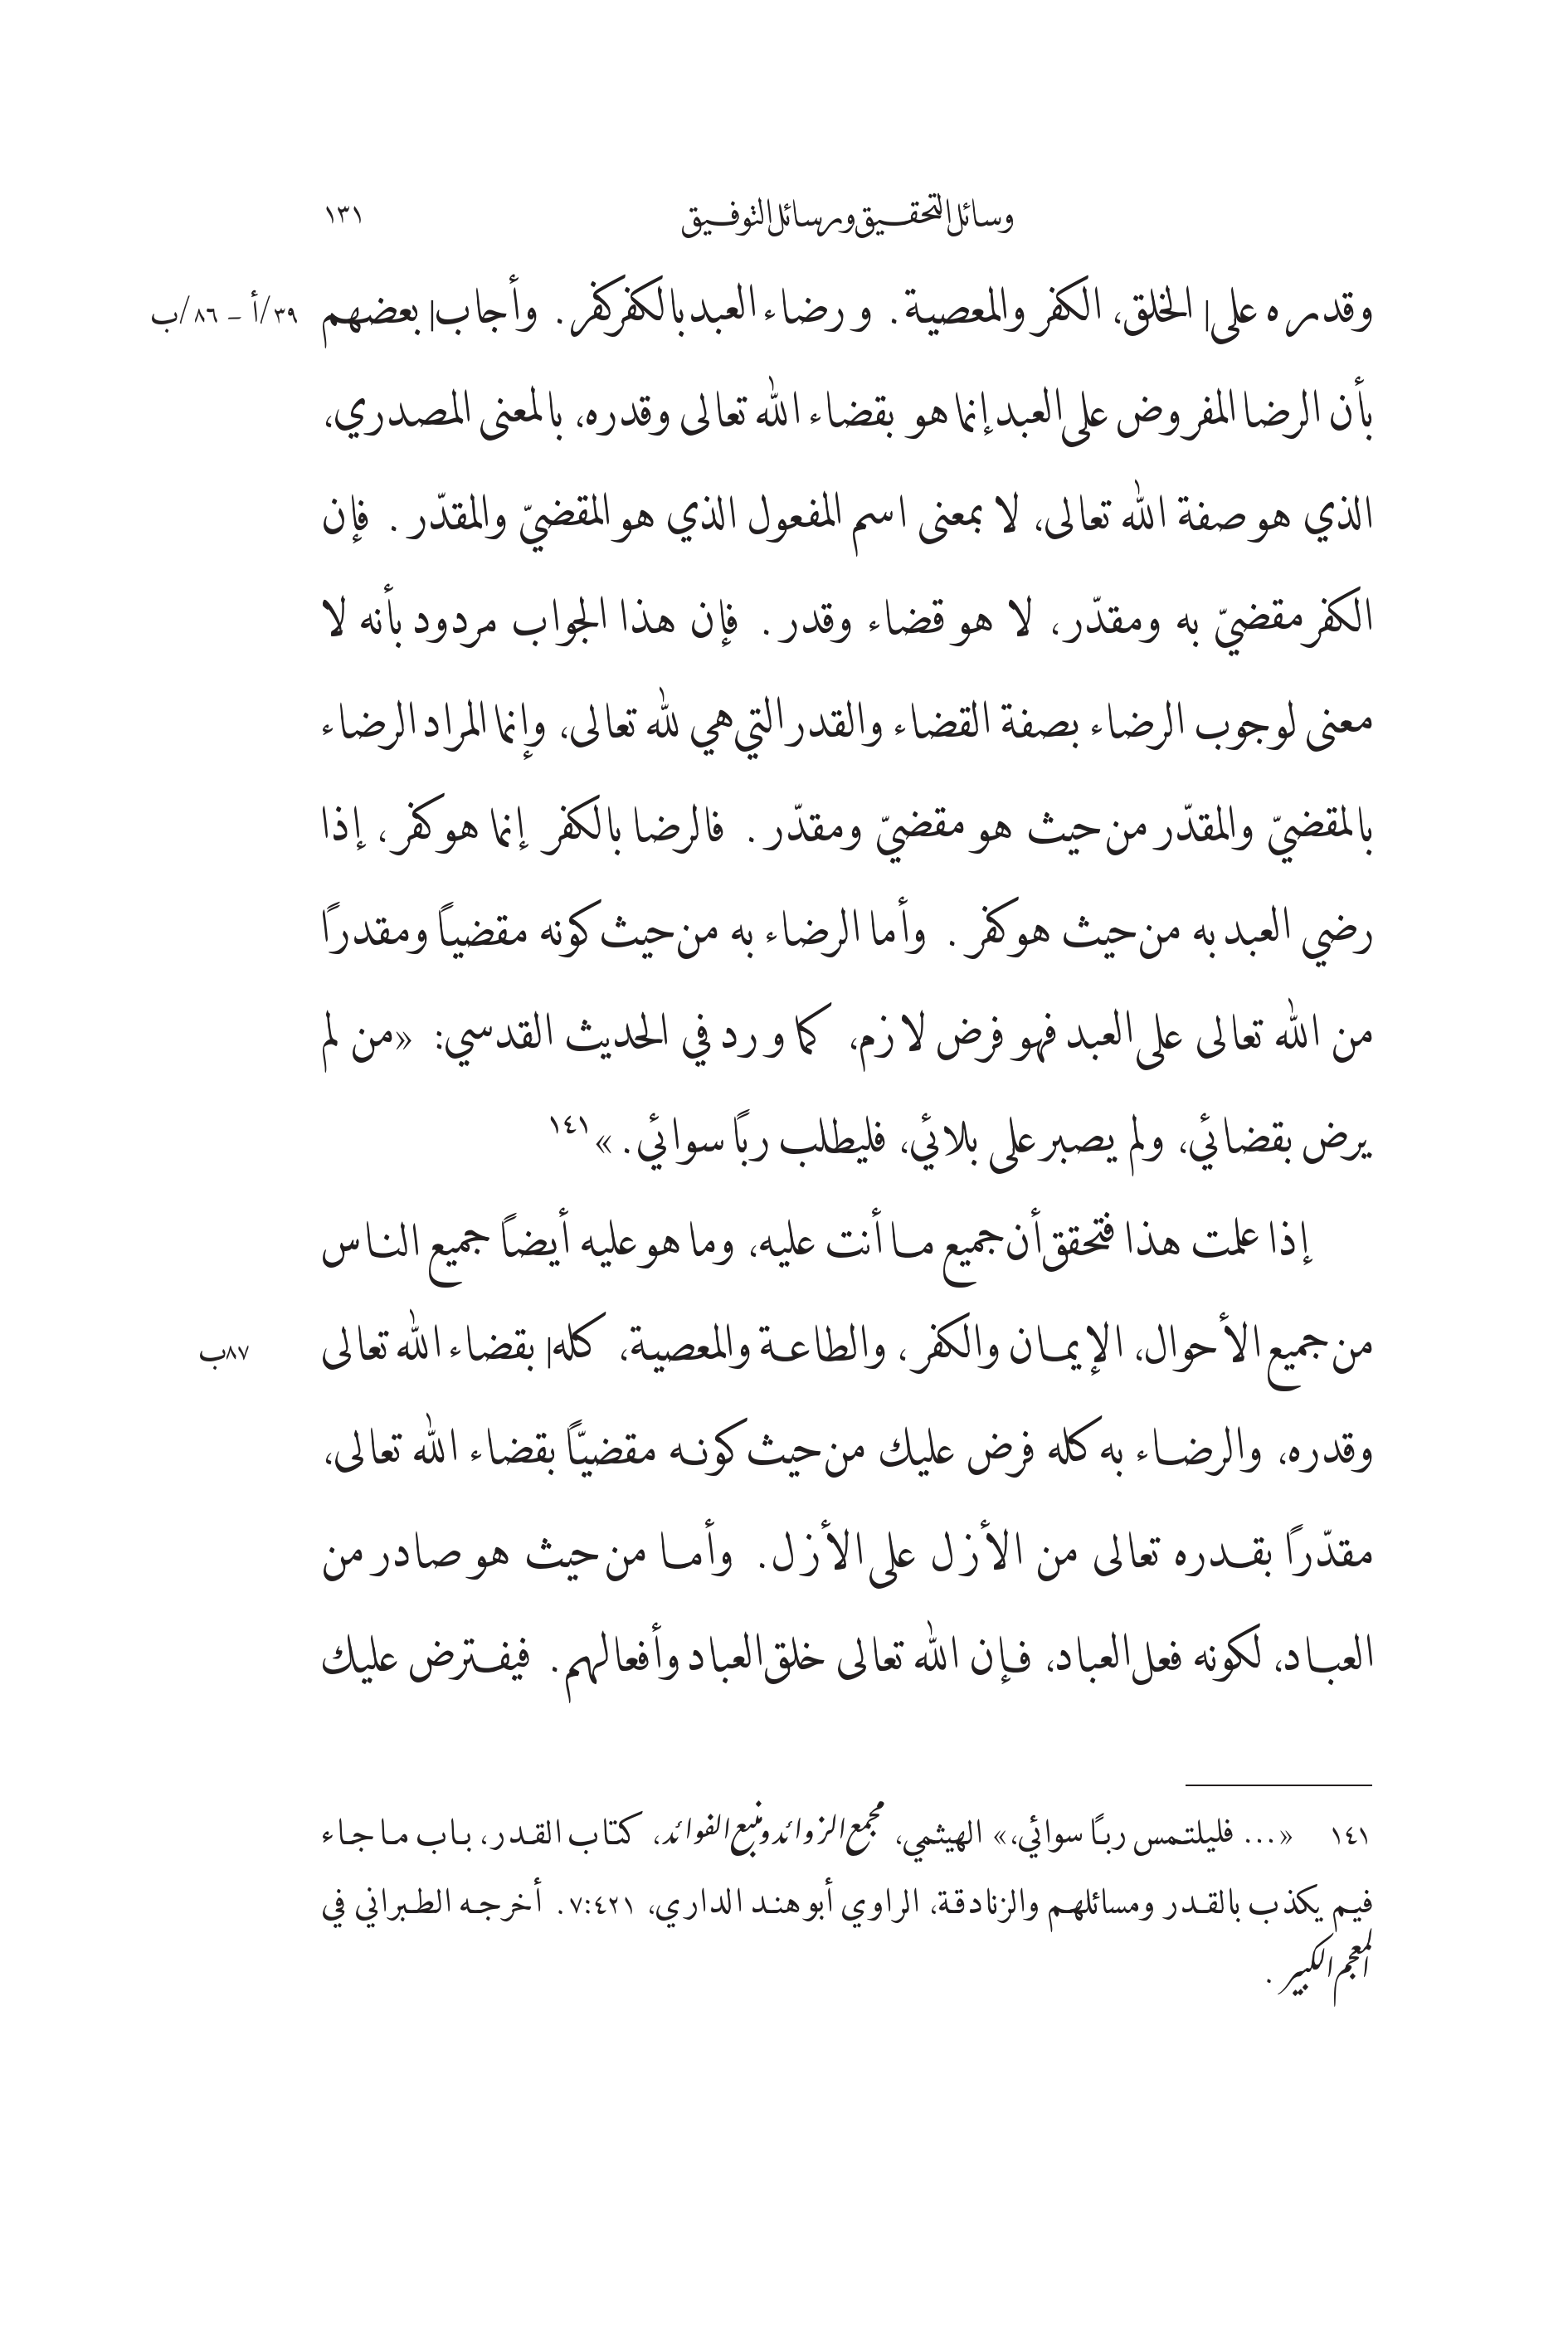 وسائل التحقيق ورسائل التوفيق ١٣١
وقدره على| الخلق، الكفر والمعصية. ورضاء العبد بالكفر كفر. وأجاب| بعضهم ٣٩/أ – ٨٦/ب
بأن الرضا المفروض على العبد إنما هو بقضاء الله تعالى وقدره، بالمعنى المصدري،
الذي هو صفة الله تعالى، لا بمعنى اسم المفعول الذي هو المقضيّ والمقدّر. فإن
الكفر مقضيّ به ومقدّر، لا هو قضاء وقدر. فإن هذا الجواب مردود بأنه لا
معنى لوجوب الرضاء بصفة القضاء والقدر التي هي لله تعالى، وإنما المراد الرضاء
بالمقضيّ والمقدّر من حيث هو مقضيّ ومقدّر. فالرضا بالكفر إنما هو كفر، إذا
رضي العبد به من حيث هو كفر. وأما الرضاء به من حيث كونه مقضياً ومقدراً
من الله تعالى على العبد فهو فرض لازم، كما ورد في الحديث القدسي: «من لم
يرض بقضائي، ولم يصبر على بلائي، فليطلب ربًا سوائي.»١٤١
إذا علمت هذا فتحقق أن جميع ما أنت عليه، وما هو عليه أيضاً جميع الناس
من جميع الأحوال، الإيمان والكفر، والطاعة والمعصية، كله| بقضاء الله تعالى ٨٧ب
وقدره، والرضاء به كله فرض عليك من حيث كونه مقضيّاً بقضاء الله تعالى،
مقدّرًا بقدره تعالى من الأزل على الأزل. وأما من حيث هو صادر من
العباد، لكونه فعل العباد، فإن الله تعالى خلق العباد وأفعالهم. فيفترض عليك
١٤١ «... فليلتمس ربًا سوائي،» الهيثمي، مجمع الزوائد ومنبع الفوائد، كتاب القدر، باب ما جاء
فيم يكذب بالقدر ومسائلهم والزنادقة، الراوي أبو هند الداري، ٧:٤٢١. أخرجه الطبراني في
المعجم الكبير.